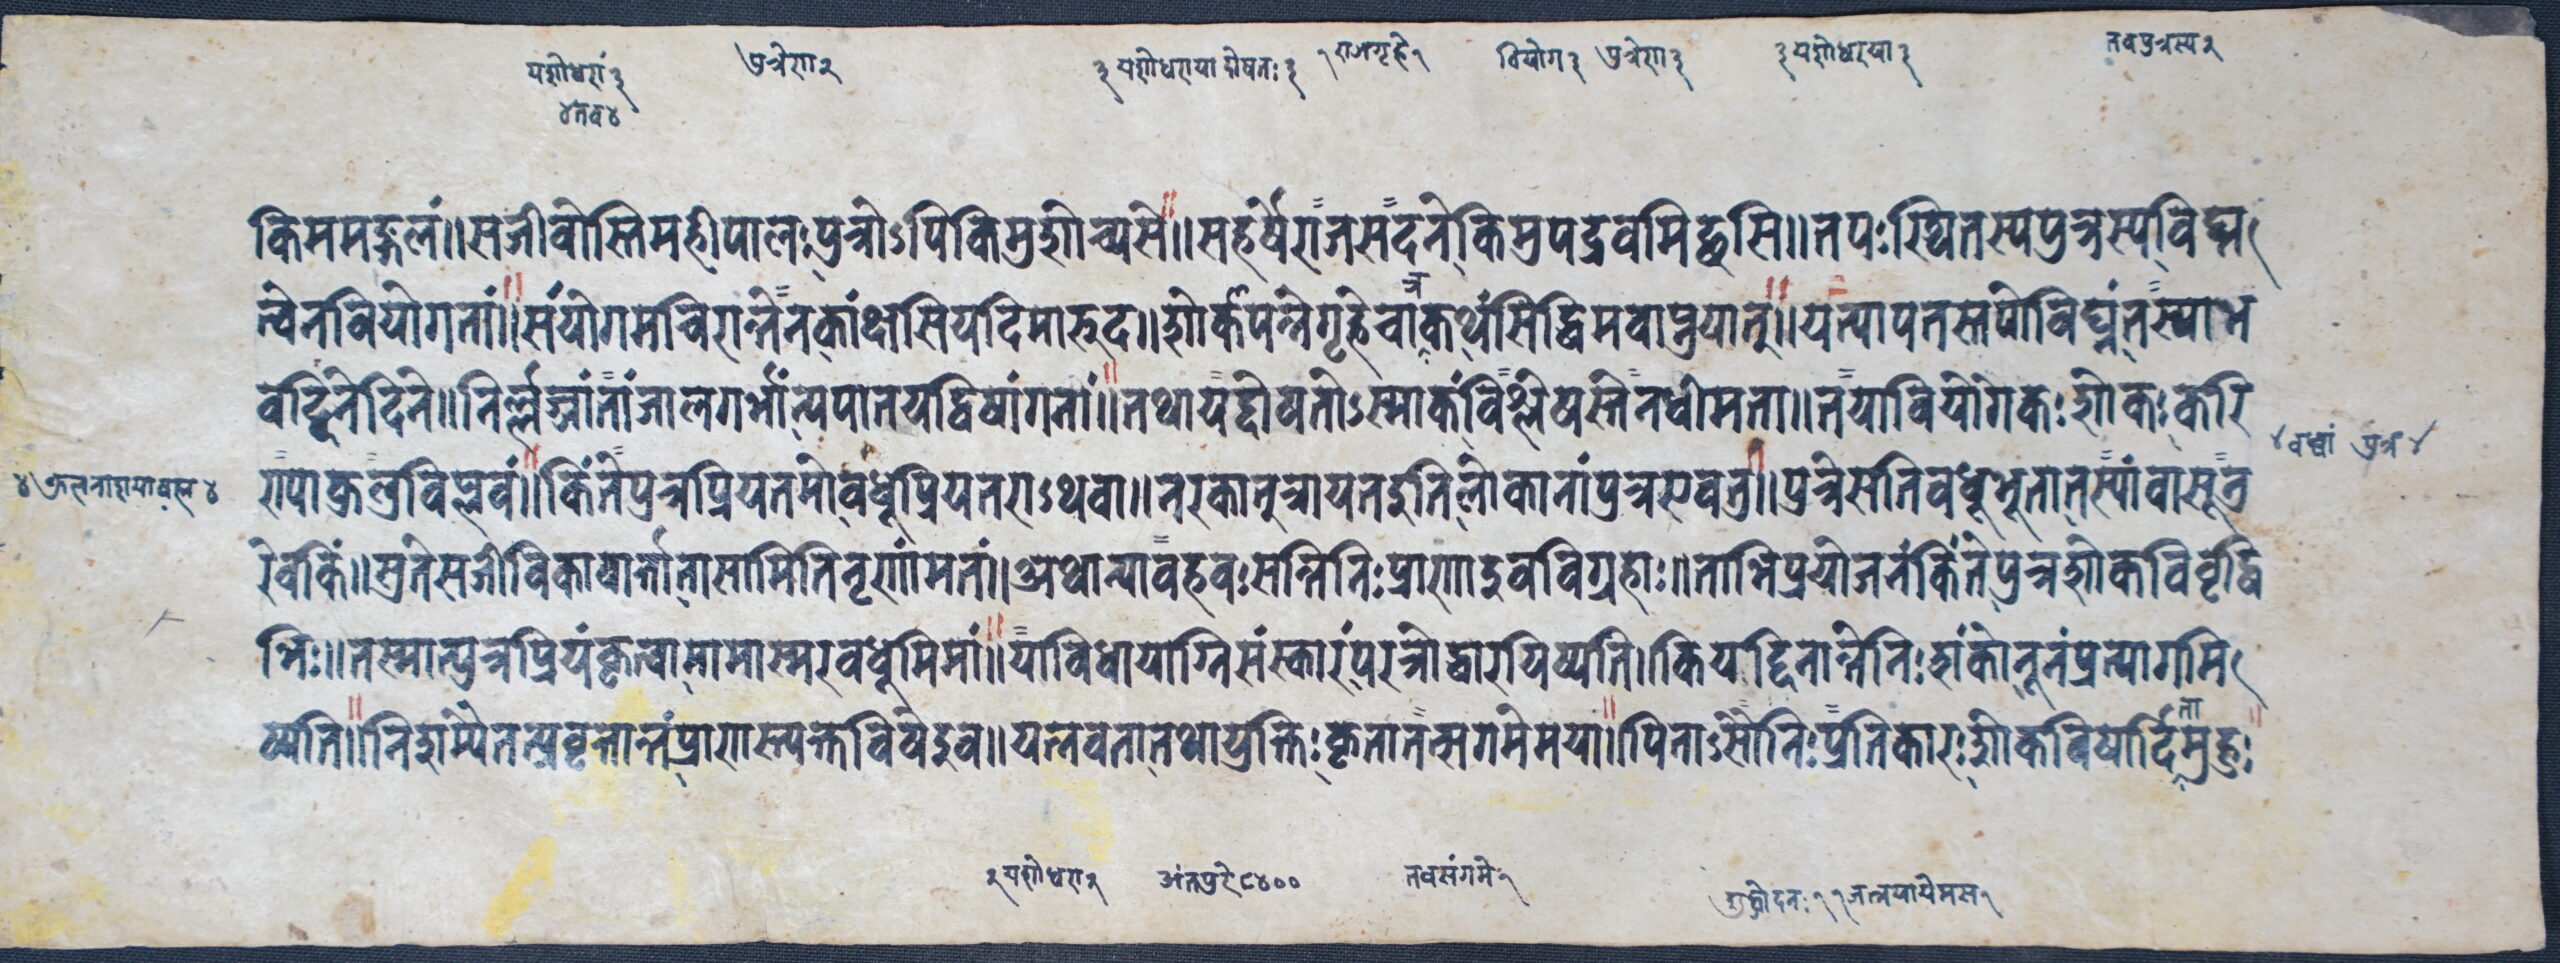 यशोधरां ३ पुत्रेण २ ३ यशोधराया दोषतः ३ १ राजगृहे १ वियोग ३ पुत्रेण ३ ३ यशोधरया ३ तवपुत्रस्य २
४ तव ४
किममङ्गलं॥सजीवोस्तिमहीपालःपुत्रोऽपिकिमुशोच्यसे॥सहर्षेराजसदनेकिमुपद्रवमिच्छसि॥तपःस्थितस्यपुत्रस्यविघ्न
त्वेनवियोगतां॥संयोगमचिरात्तेनकांक्षसियदिमारुद॥शोकंपत्नेगृहेचात्रकथंसिद्धिमवाप्नुयात्॥यत्यापतस्तपोविघ्नंतस्याभ
वद्दिनेदिने॥निर्ल्लज्जांतांजालगर्भांत्यपातयद्विषांगतां॥तथायद्दोषतोऽस्माकंविश्लेषस्तेनधीमता॥तयावियोगेकःशोकःकरि
४ वध्वां पुत्रं ४
रापाक्रतुविप्लवं॥किंतेपुत्रप्रियतमोवधूप्रियतराऽथवा॥नरकानुत्रायतइतिलोकानांपुत्रएवतु॥पुत्रेसतिवधूभूतातस्यांवासूत्र
रेवकिं॥सुतेसजीविकावार्त्तातासामितिनृणांमतां॥अथान्यावहवःसन्तितिःप्राणाइवविग्रहाः॥ताभिप्रयोजनंकिंतेपुत्रशोकविवृद्धि
भिः॥तस्मात्पुत्रप्रियंकृत्वामामास्मरवधूमिमां॥याविधायाग्निसंस्कारंपरत्रोद्धारयिष्यति॥कियद्दिनान्तेनिःशंकोनूनंप्रत्यागमि
ष्यति॥निशम्यैतत्प्रवृत्तान्तंप्राणास्त्यक्तविषैइव॥यत्नवतातथायुक्तिःकृतातत्सगमेमया॥पिताऽसौनिःप्रतिकारःशोकविषार्दितामुहुः
२ यशोधरा २ अंतपुरे ८४०० तवसंगमे १ शुद्धोदनः १